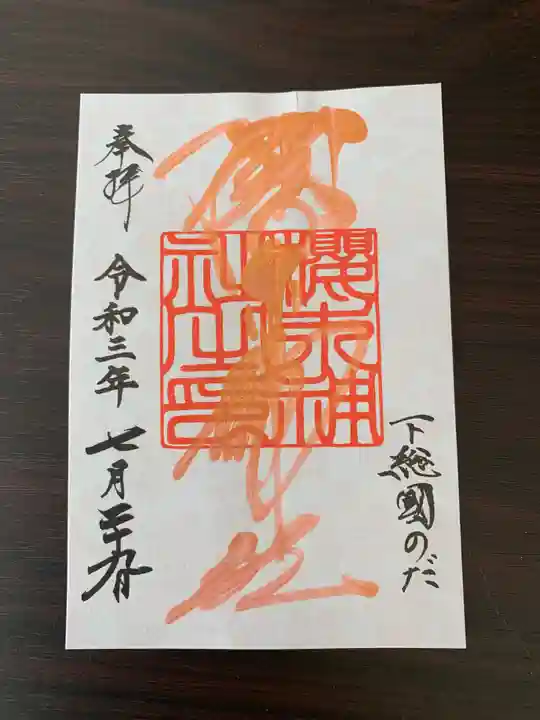 下総國のだ
櫻木神
社之印
奉拝 令和三年七月二十九日